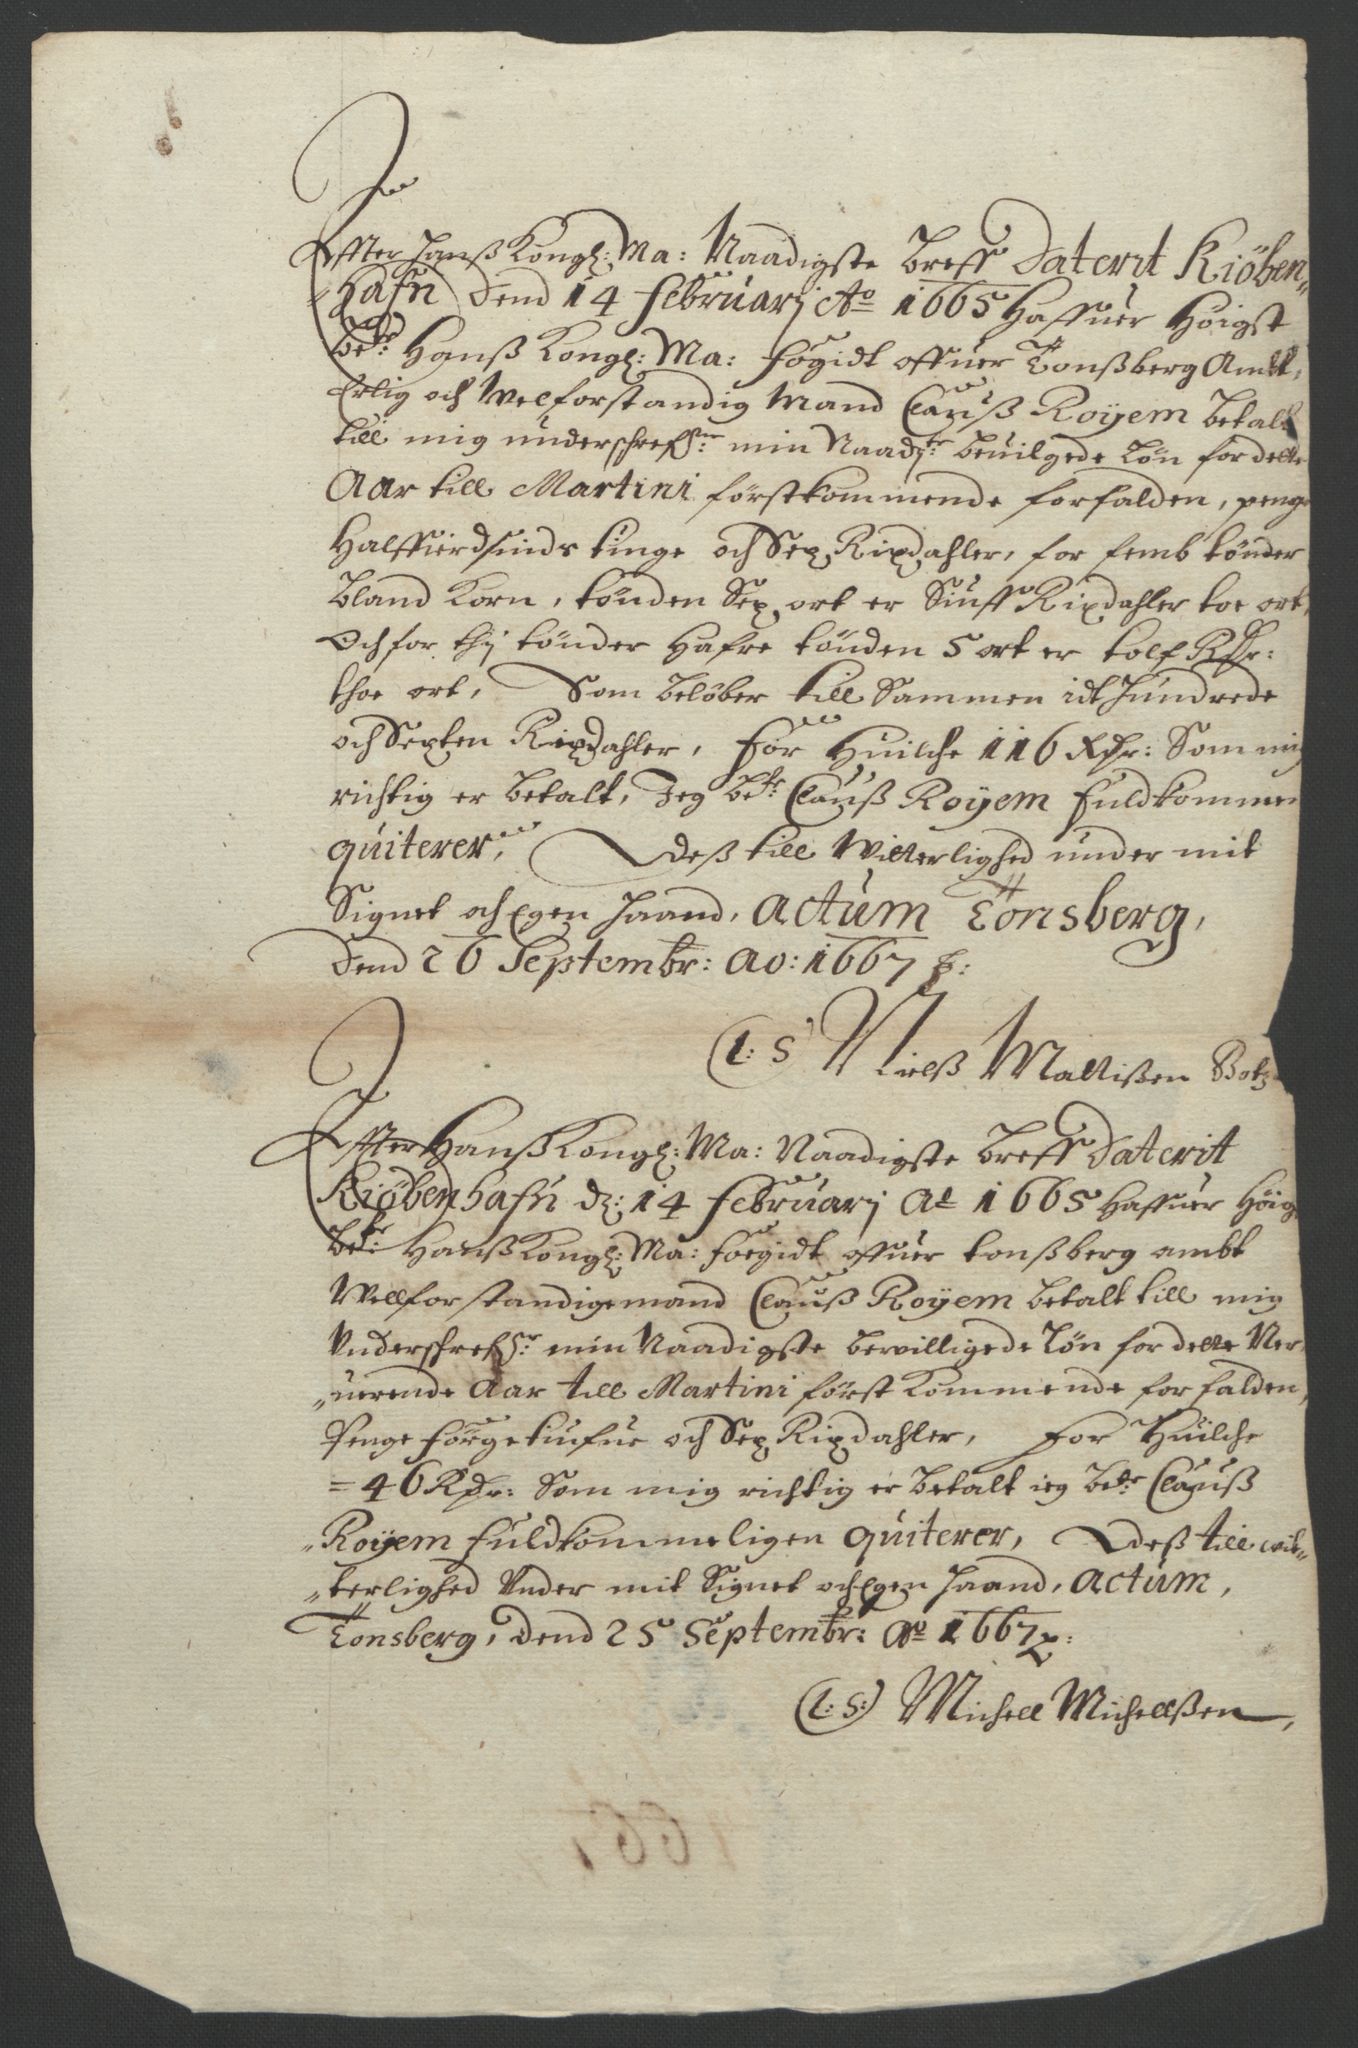 Effter Hanß Kongl: Ma: Naadigste breff Daterit Kiöben-
hafn Dend 14 Februarj Ao 1665 Haffuer Høigst
be:te Hanß Kongl: Ma: fogidt offuer Tonßberg Ambt,
Erlig och Welforstandig Mand Clauß Roÿem betalt
till mig underschrefne min Naad:te beuilgede Løn for dette
Aar till Martini førstkommende forfalden, penge
Halffierdsinds tiuge och Sex Rixdahler, for femb tønder
bland Korn, tønden Sex ort er Siuff Rixdahler toe ort,
Och for thj tønder Hafre tønden 5 ort er tolf Rdr:
thoe ort, Som beløber till Sammen idt Hundrede
och Sexten Rixdahler, for Huilche 116 Rdr: Som mig
richtig er betalt, Jeg be:te Clauß Roÿem fuldkommen
quiterer, Deß till Witterlighed under mit
Signet och Egen Haand, Actum Tonsberg,
Dend 26 Septembr: Ao: 1667
(L: S) Nielß Mattißen
Effter Hanß Kongl: Ma: Naadigste breff Daterit
Kiöbenhafn d: 14 Februarj Ao 1665 Haffuer Høig
be:te Hanß Kongl: Ma: foegidt offuer tonßberg ambt
Wellforstandigemand Clauß Roÿem betalt till mig
Underschrefne min Naadigste bewilligede Løn for dette Ner
uerende Aar till Martini først Kommende forfalden,
Penge førgetiufue och Sex Rixdahler, for Huilche
= 46 Rdr: Som mig richtig er betalt ieg be:te Clauß
Roÿem fuldkommeligen quiterer, Deß till wit-
terlighed Under mit Signet och Egen Haand, Actum,
Tonsberg, Dend 25 Septembr: Ao 1667
(L: S:) Michell Michellßen,